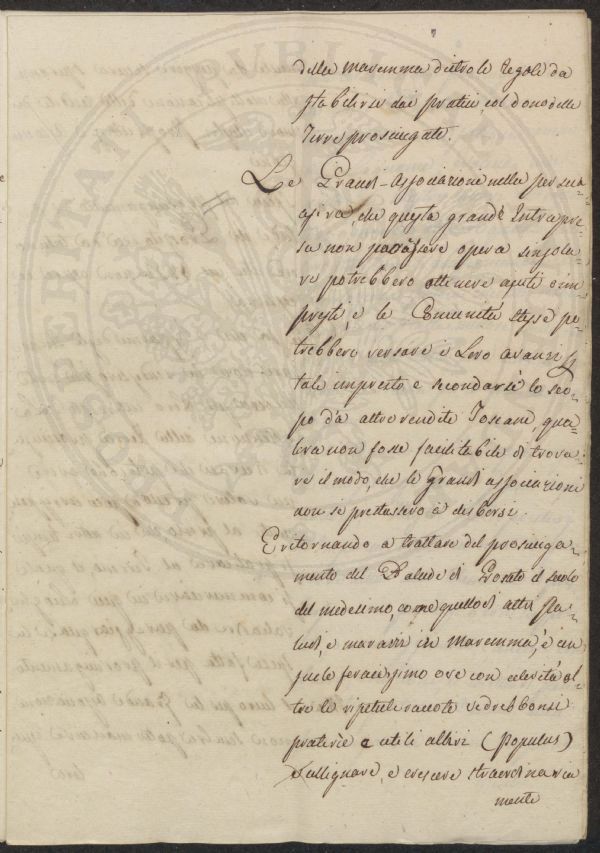 della maremma dietro le regole da
stabilirsi dai pratici, col dono delle
Terre prosciugate.
Le Grandi-Associazione nella persua=
siva, che questa grande Intrapre=
sa non può essere opera singola=
re potrebbero ottenere ajuti o im
prestiti, e le Comunità stesse po=
trebbero versare i loro avanzi
tale impresto e secondarsi lo sco=
po da altre rendite Toscane, qua=
lora non fosse facilitabile di trova=
re il modo, che le Grandi associazioni
non si prestassero a disborsi.
E ritornando a trattare del prosciuga=
mento del Palude di il suolo
del medesimo, come quello di altri Pa=
ludi, e marazzi in Maremma, è un
suolo feracissimo ove con celerità ol=
tre le ripetute raccolte vedrebbonsi
praterie e utili alberi (Populus)
allignare, e crescere straordinaria
mente